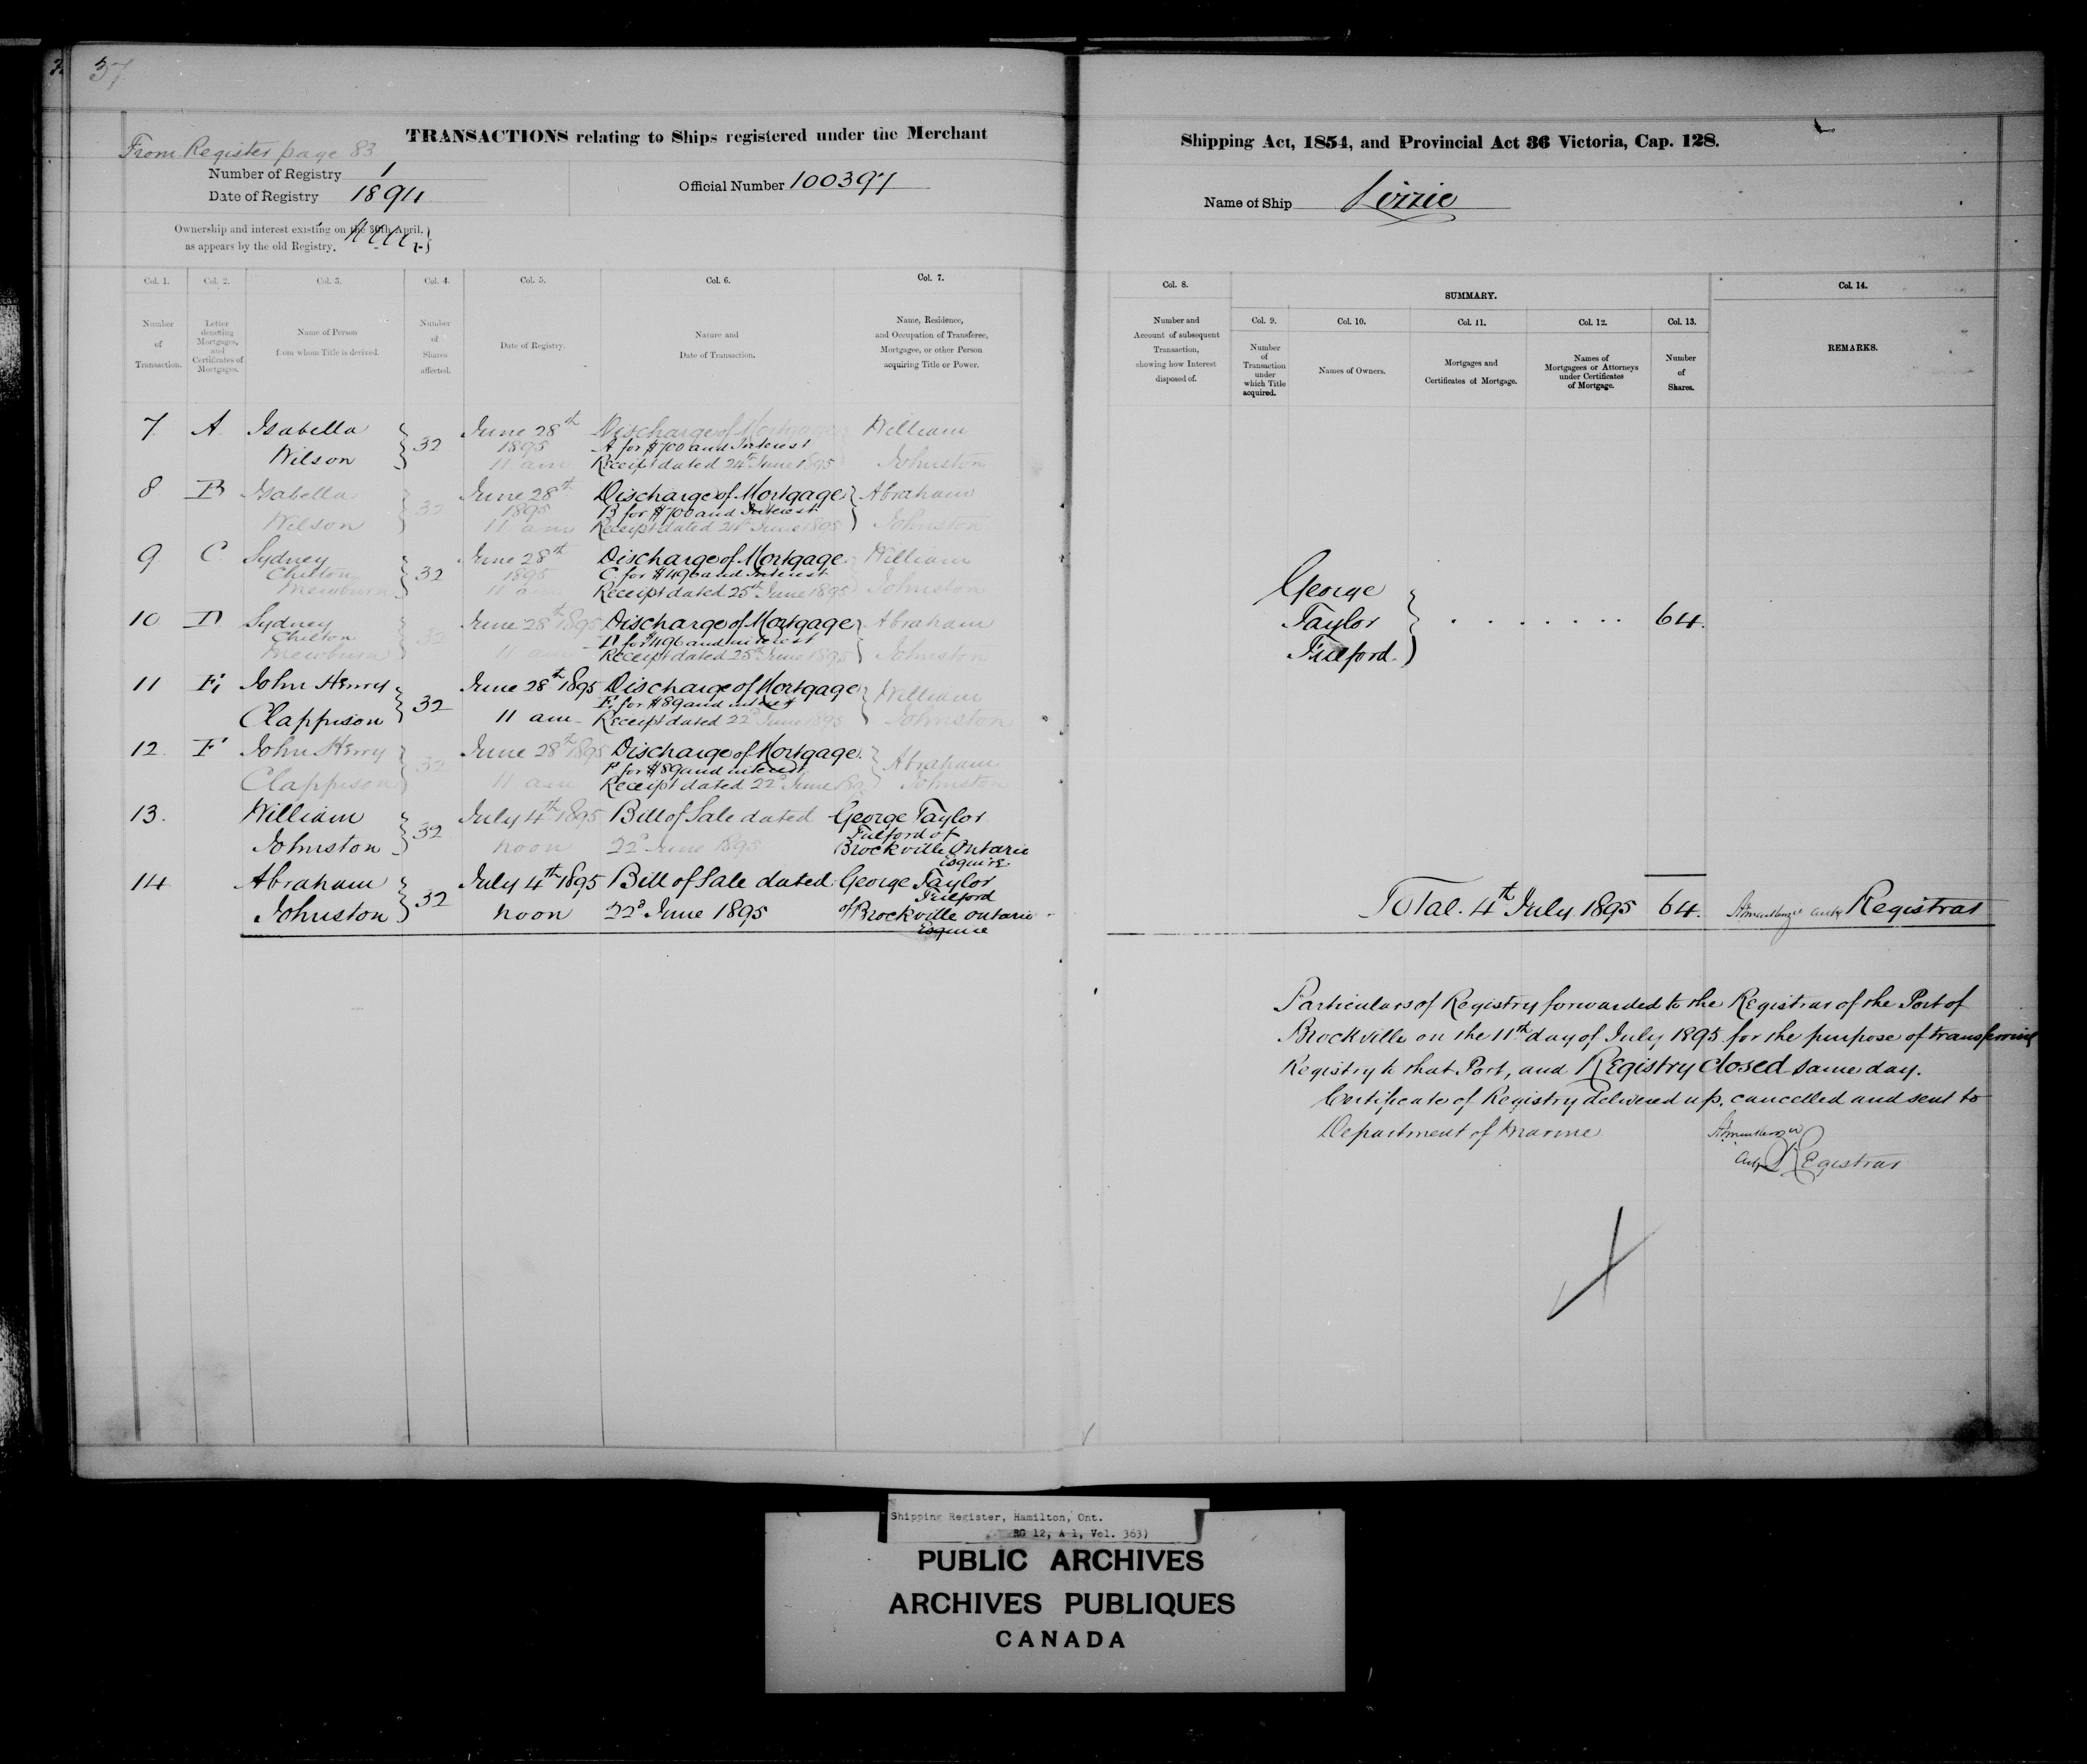 37
From Register page 83
TRANSACTIONS relating to Ships registered under the Merchant
Number of Registry 1
Date of Registry 1894
Official Number 100397
Ownership and interest existing on the 30th April.
as appears by the old Registry.
Col. 1. Col. 2. Col. 3. Col. 4. Col. 5. Col. 6. Col. 7.
Number of Transaction.
Letter denoting Mortgages, and Certificates of Mortgages.
Name of Person from whom Title is derived.
Number of Shares affected.
Date of Registry.
Nature and Date of Transaction.
Name, Residence, and Occupation of Transferee, Mortgagee, or other Person acquiring Title or Power.
7 A Isabella Wilson } 32 June 28th 1895 11 am Discharge of Mortgage A for $700 and Interest Receipt dated 24th June 1895 } William Johnston
8 B Isabella Wilson } 32 June 28th 1895 11 am Discharge of Mortgage B for $700 and Interest Receipt dated 24th June 1895 } Abraham Johnston
9 C Sydney Chilton Mewburn } 32 June 28th 1895 11 am Discharge of Mortgage C for $496 and Interest Receipt dated 25th June 1895 } William Johnston
10 D Sydney Chilton Mewburn } 32 June 28th 1895 11 am Discharge of Mortgage D for $496 and interest Receipt dated 25th June 1895 } Abraham Johnston
11 E John Henry Clappison } 32 June 28th 1895 11 am Discharge of Mortgage E for $89 and interest Receipt dated 22d June 1895 } William Johnston
12. F John Henry Clappison } 32 June 28th 1895 11 am Discharge of Mortgage F for $89 and interest Receipt dated 22d June 1895 } Abraham Johnston
13. William Johnston } 32 July 4th 1895 noon Bill of Sale dated 22d June 1895 George Taylor Fulford of Brockville Ontario Esquire
14 Abraham Johnston } 32 July 4th 1895 noon Bill of Sale dated 22d June 1895 George Taylor Fulford of Brockville Ontario Esquire
Shipping Act, 1854, and Provincial Act 36 Victoria, Cap. 128.
Name of Ship Lizzie
Col. 8. SUMMARY. Col. 14.
Col. 9. Col. 10. Col. 11. Col. 12. Col. 13.
Number and Account of subsequent Transaction, showing how Interest disposed of.
Number of Transaction under which Title acquired.
Names of Owners.
Mortgages and Certificates of Mortgage.
Names of Mortgagees or Attorneys under Certificates of Mortgage.
Number of Shares.
REMARKS.
George
Taylor } . . . . . . . . 64.
Fulford.
Total. 4th July 1895 64. Registrar
Particulars of Registry forwarded to the Registrar of the Port of
Brockville on the 11th day of July 1895 for the purpose of transferring
Registry to that Port, and Registry closed same day.
Certificate of Registry delivered up, cancelled and sent to
Department of Marine
Registrar
Shipping Register, Hamilton, Ont.
RG 12, A 1, Vol. 363)
PUBLIC ARCHIVES
ARCHIVES PUBLIQUES
CANADA